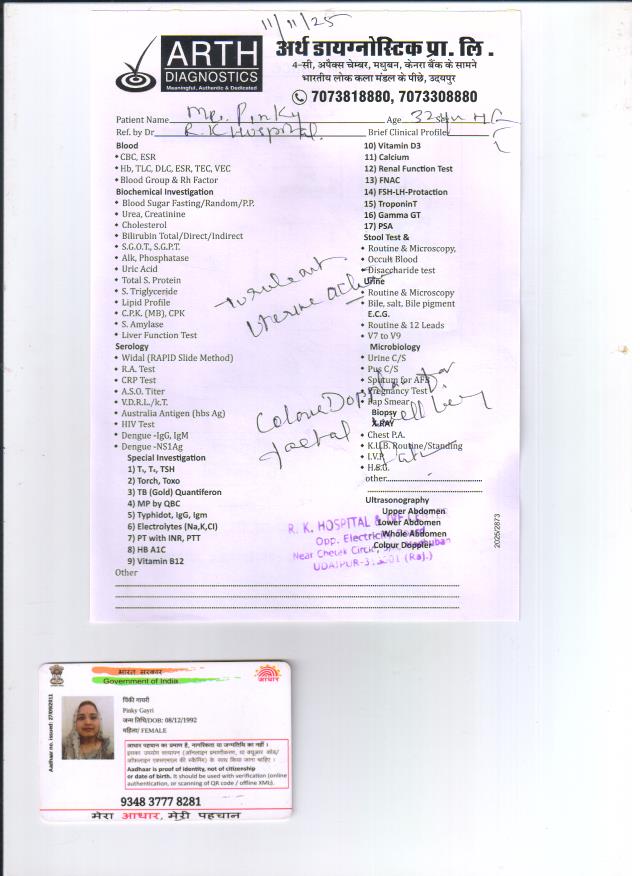 11/11/25
ARTH
DIAGNOSTICS
Meaningful, Authentic & Dedicated
अर्थ डायग्नोस्टिक प्रा. लि.
4-सी, अपैक्स चेम्बर, मधुबन, केनरा बैंक के सामने
भारतीय लोक कला मंडल के पीछे, उदयपुर
7073818880, 7073308880
Patient Name Mrs. Pinky Age 32
Ref. by Dr R.K Hospital. Brief Clinical Profile
Blood
• CBC, ESR
• Hb, TLC, DLC, ESR, TEC, VEC
• Blood Group & Rh Factor
Biochemical Investigation
• Blood Sugar Fasting/Random/P.P.
• Urea, Creatinine
• Cholesterol
• Bilirubin Total/Direct/Indirect
• S.G.O.T., S.G.P.T.
• Alk, Phosphatase
• Uric Acid
• Total S. Protein
• S. Triglyceride
• Lipid Profile
• C.P.K. (MB), CPK
• S. Amylase
• Liver Function Test
Serology
• Widal (RAPID Slide Method)
• R.A. Test
• CRP Test
• A.S.O. Titer
• V.D.R.L./k.T.
• Australia Antigen (hbs Ag)
• HIV Test
• Dengue -IgG, IgM
• Dengue -NS1Ag
Special Investigation
1) T₃, T₄, TSH
2) Torch, Toxo
3) TB (Gold) Quantiferon
4) MP by QBC
5) Typhidot, IgG, Igm
6) Electrolytes (Na,K,Cl)
7) PT with INR, PTT
8) HB A1C
9) Vitamin B12
Other
10) Vitamin D3
11) Calcium
12) Renal Function Test
13) FNAC
14) FSH-LH-Protaction
15) TroponinT
16) Gamma GT
17) PSA
Stool Test &
• Routine & Microscopy,
• Occult Blood
• Disaccharide test
Urine
• Routine & Microscopy
• Bile, salt, Bile pigment
E.C.G.
• Routine & 12 Leads
• V7 to V9
Microbiology
• Urine C/S
• Pus C/S
• Sputum for AFB
• Pregnancy Test
• Pap Smear
Biopsy
X-RAY
• Chest P.A.
• K.U.B. Routine/Standing
• I.V.P.
• H.S.G.
other
Ultrasonography
Upper Abdomen
Lower Abdomen
Whole Abdomen
Colour Doppler
to rule out
Uterine
Colour Doppler for
foetal well being
R. K. HOSPITAL &
Opp. Electricity Board
Near Chetak Circle, Madhuban
UDAIPUR-313001 (Raj.)
2025/2873
भारत सरकार
Government of India
आधार
Aadhaar no. issued: 27/09/2011
पिंकी गायरी
Pinky Gayri
जन्म तिथि/DOB: 08/12/1992
महिला/ FEMALE
आधार पहचान का प्रमाण है, नागरिकता या जन्मतिथि का नहीं ।
इसका उपयोग सत्यापन (ऑनलाइन प्रमाणीकरण, या क्यूआर कोड/
ऑफलाइन एक्सएमएल की स्कैनिंग) के साथ किया जाना चाहिए ।
Aadhaar is proof of identity, not of citizenship
or date of birth. It should be used with verification (online
authentication, or scanning of QR code / offline XML).
9348 3777 8281
मेरा आधार, मेरी पहचान